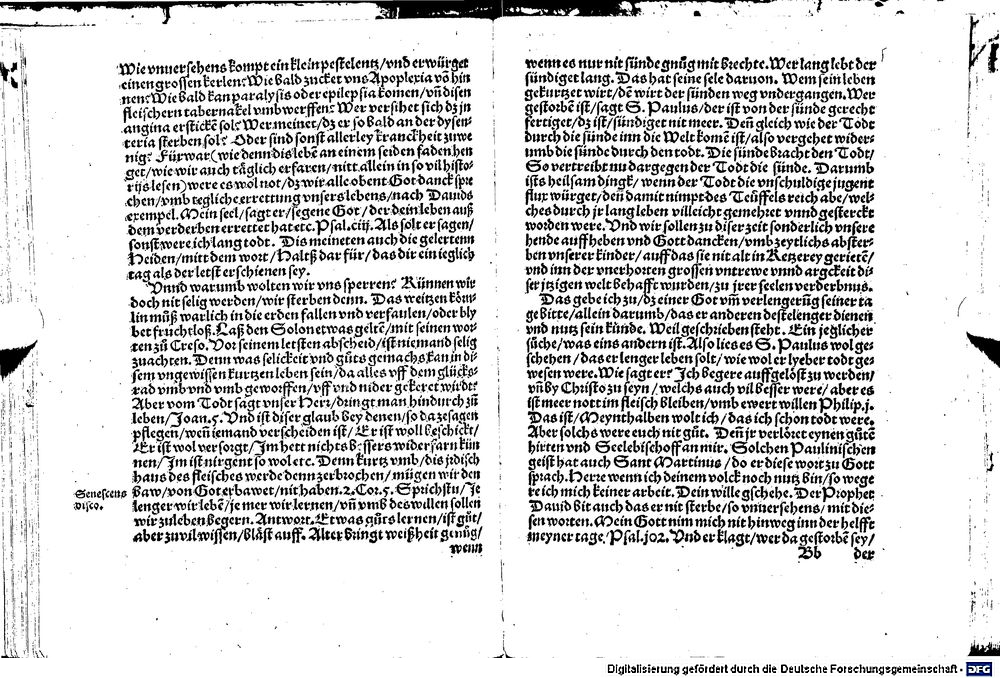 Wie vnuersehens kompt ein klein pestelentz/vnd erwürget
einen grossen kerlen? Wie bald zucket vns Apoplexia võ hin
nen? Wie bald kan paralysis oder epilepsia komen/vñ disen
fleischern tabernakel vmbwerffen? Wer versihet sich dz jn
angina ersticke sol? Wer meinet/dz er so bald an der dysen-
teria sterben sol? Oder sind sonst allerley kranckheit zuwe
nig? Fürwar (wie denn dis lebẽ an einem seiden faden hen
get/wie wir auch täglich erfaren/nitt allein in so vil histo-
rijs lesen) were es wol not/dz wir alle obent Got danck spre
chen/vmb tegliche errettung vnsers lebens/nach Dauids
exempel. Mein seel/sagt er/segene Got/der dein leben auß
dem verderben errettet hat etc. Psal.ciij. Als sölt er sagen/
sonst were ich lang todt. Dis meineten auch die gelertenn
Heiden/mitt dem wort/Haltß dar für/das dir ein ieglich
tag als der letst erschienen sey.
Vnnd warumb wolten wir vns sperren? Künnen wir
doch nit selig werden/wir sterben denn. Das weitzen körn-
lin müß warlich in die erden fallen vnd verfaulen/oder bly
bet fruchtloß. Laß den Solon etwas geltẽ/mit seinen wor-
ten zü Creso. Vor seinem letsten abscheid/ist niemand selig
zuachten. Denn was selickeit vnd güts gemachs kan in di-
sem vngewissen kurtzen leben sein/da alles vff dem glücks-
rad vmb vnd vmb geworffen/vff vnd nider gekeret wirdt?
Aber vom Todt sagt vnser Herr/dringt man hindurch zü
leben/Joan.5. Vnd ist diser glaub bey denen/so da zesagen
pflegen/weñ iemand verscheiden ist/Er ist woll beschickt/
Er ist wol versorgt/Im hett nichts bessers widerfarn kün
nen/Im ist nirgent so wol etc. Denn kurtz vmb/dis jrdisch
haus des fleisches werde denn zerbrochen/mügen wir den
baw/von Got erbawet/nit haben.2.Cor.5. Sprichstu/Je
Senescens
disco.
lenger wir lebẽ/je mer wir lernen/vñ vmb des willen sollen
wir zuleben begern. Antwort. Etwas güts lernen/ist güt/
aber zuvil wissen/bläst auff. Alter bringt weißheit genüg/
wenn
wenn es nur nit sünde gnüg mit brechte. Wer lang lebt der
sündiget lang. Das hat seine sele daruon. Wem sein leben
gekurtzet wirt/dẽ wirt der sünden weg vndergangen. Wer
gestorbẽ ist/sagt S. Paulus/der ist von der sünde gerecht
fertiget/dz ist/sündiget nit meer. Deñ gleich wie der Todt
durch die sünde inn die Welt komẽ ist/also vergehet wider-
umb die sünde durch den todt. Die sünde bracht den Todt/
So vertreibt nu dargegen der Todt die sünde. Darumb
ists heilsam dingk/wenn der Todt die vnschuldige jugent
flux würget/deñ damit nimpt des Teüffels reich abe/wel-
ches durch jr lang leben villeicht gemehret vnnd gesterckt
worden were. Vnd wir sollen zu diser zeit sonderlich vnsere
hende auffheben vnd Gott dancken/vmb zeytlichs abster-
ben vnserer kinder/auff das sie nit alt in Ketzerey gerietẽ/
vnd inn der vnerhorten grossen vntrewe vnnd argckeit di-
ser jtzigen welt behafft wurden/zu jrer seelen verderbnus.
Das gebe ich zu/dz einer Got vm̃ verlengerũg seiner ta
ge bitte/allein darumb/das er anderen destelenger dienen
vnd nutz sein künde. Weil geschrieben steht. Ein jeglicher
süche/was eins andern ist. Also lies es S. Paulus wol ge-
schehen/das er lenger leben solt/wie wol er lyeber todt ge-
wesen were. Wie sagt er? Ich begere auffgelöst zu werden/
vñ by Christo zu seyn/welchs auch vil besser were/aber es
ist meer nott im fleisch bleiben/vmb ewert willen Philip.j.
Das ist/Meynthalben wolt ich/das ich schon todt were.
Aber solchs were euch nit güt. Deñ jr verlöret eynen gütẽ
hirten vnd Seelebischoff an mir. Solchen Paulinischen
geist hat auch Sant Martinus/do er diese wort zu Gott
sprach. Herre wenn ich deinem volck noch nutz bin/so wege
re ich mich keiner arbeit. Dein wille gschehe. Der Prophet
Dauid bit auch das er nit sterbe/so vnuersehens/mit die-
sen worten. Mein Gott nim mich nit hinweg inn der helfft
meyner tage/Psal.102. Vnd er klagt/wer da gestorbẽ sey/
Bb der
Digitalisierung gefördert durch die Deutsche Forschungsgemeinschaft - DFG